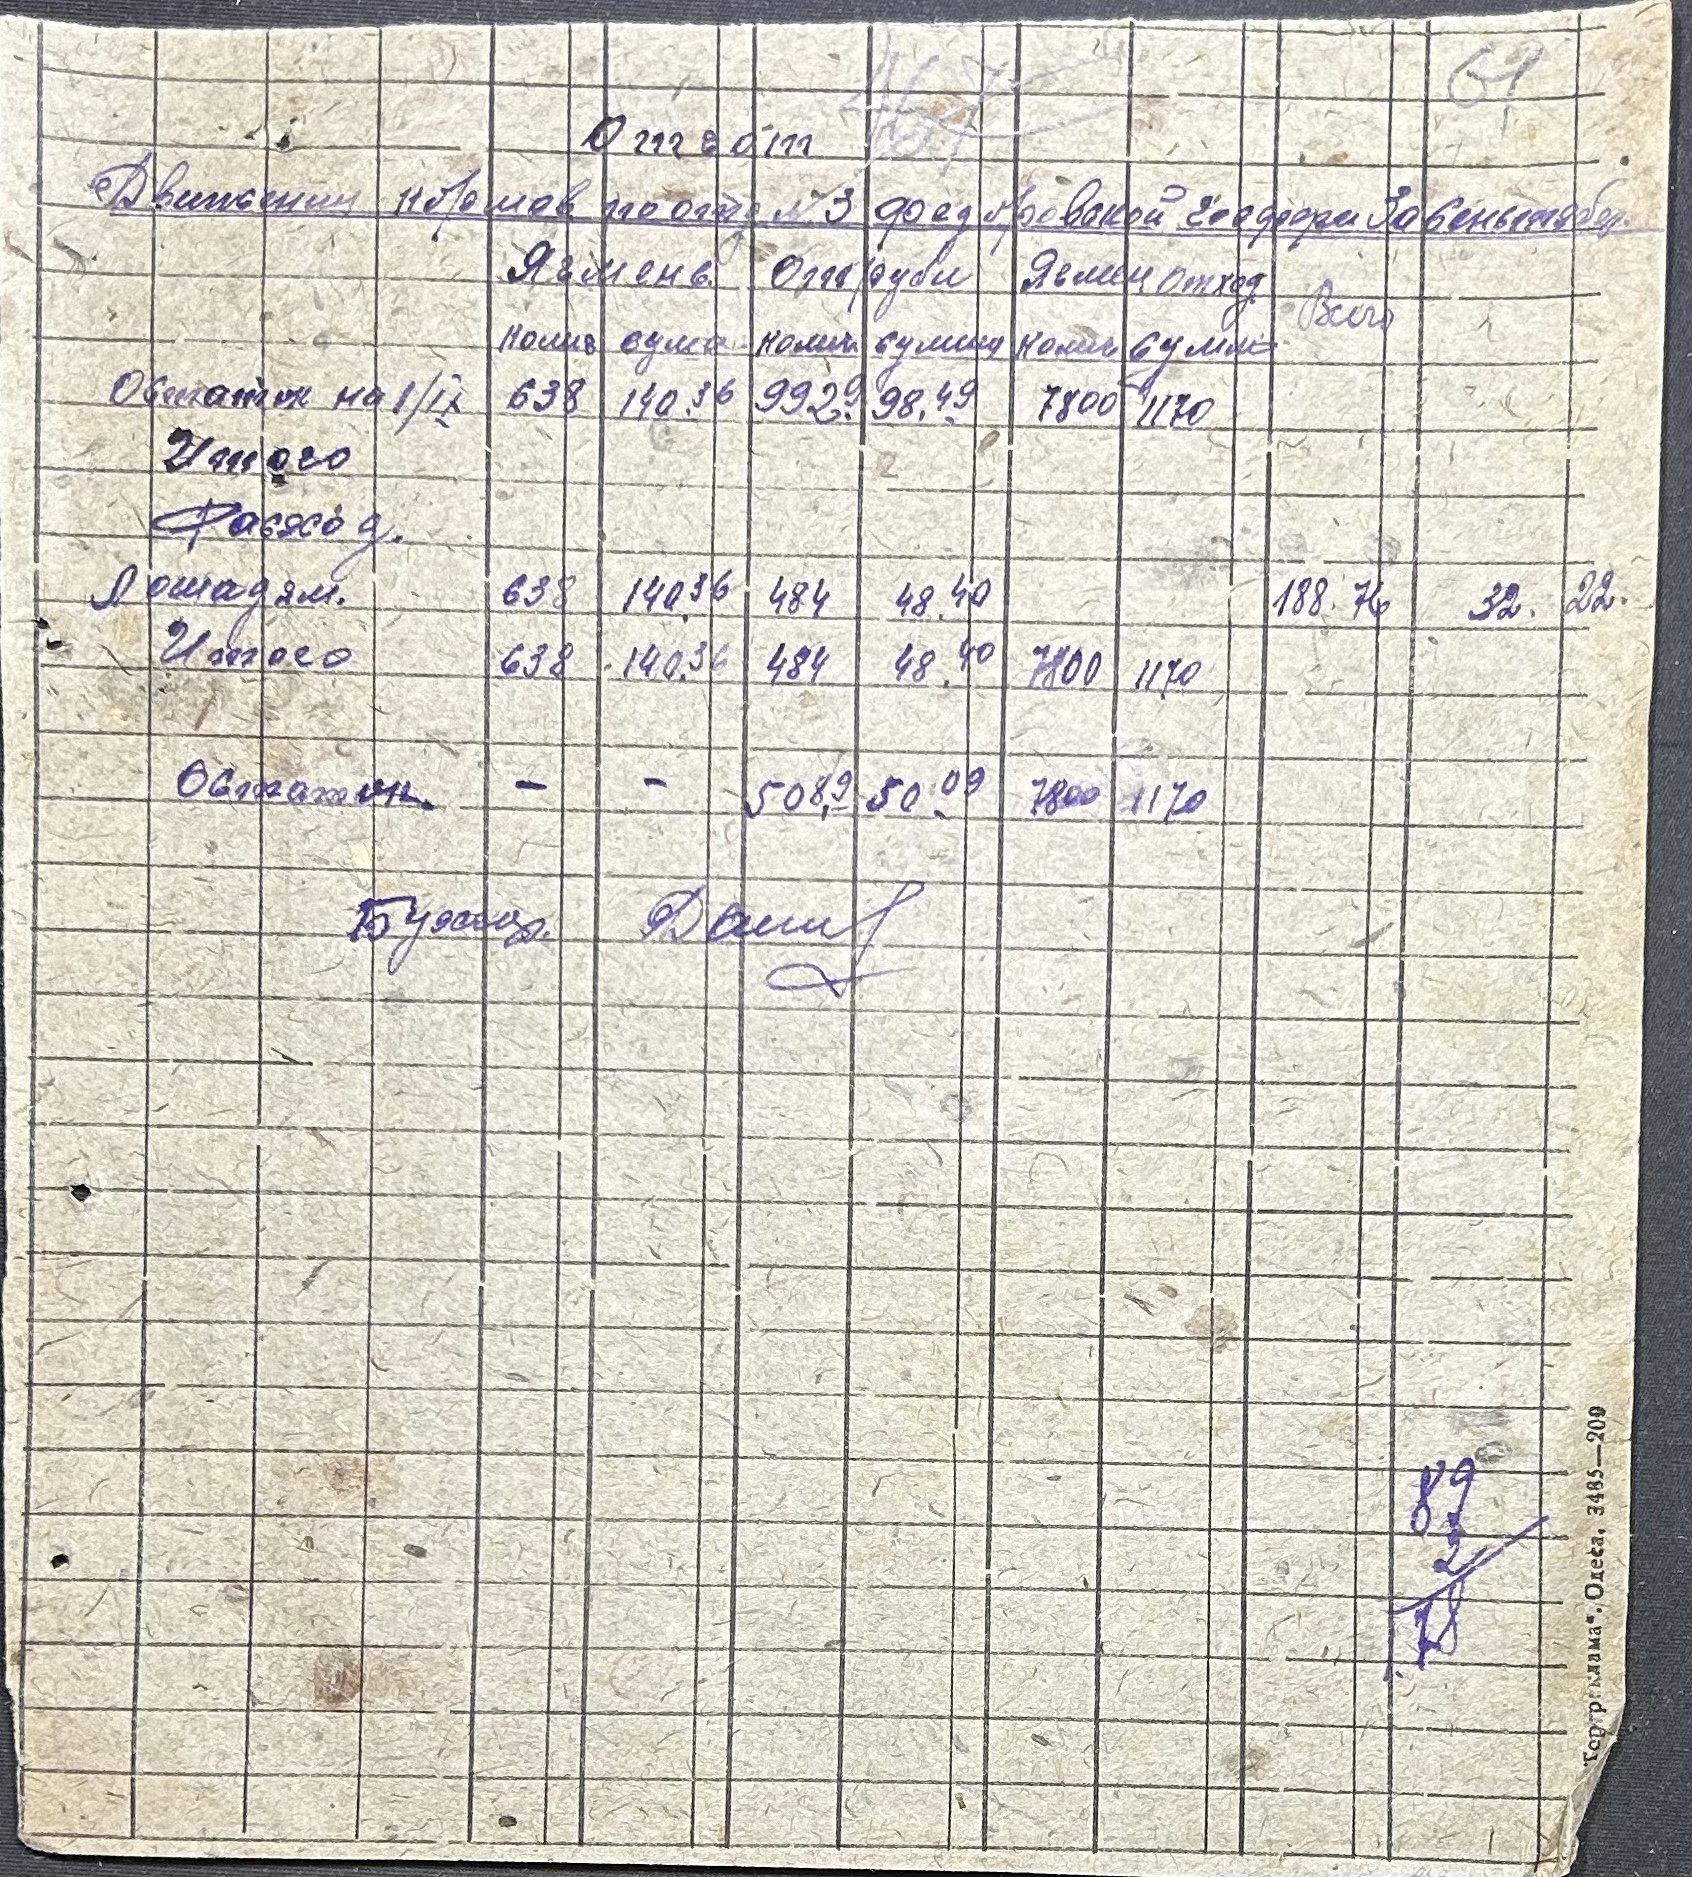 61
Отчот
Движении кормов по отд №3 Федоровской госферм За сеньтябер.
Ячмень Отруби Ячмен отход Всего
колич сума колич сумма колич сумма
Остаток на 1/IX 638 140.36 992,9 98.49 7800 1170
Итого
Расход.
Лошадям. 638 140.36 484 48.40 188.76 32. 22.
Итого 638 140.36 484 48.40 7800 1170
Остаток. - - 508,9 50.09 7800 1170
Бухгр.
89
2
78
"Горреклама", Одеса, 3485—209